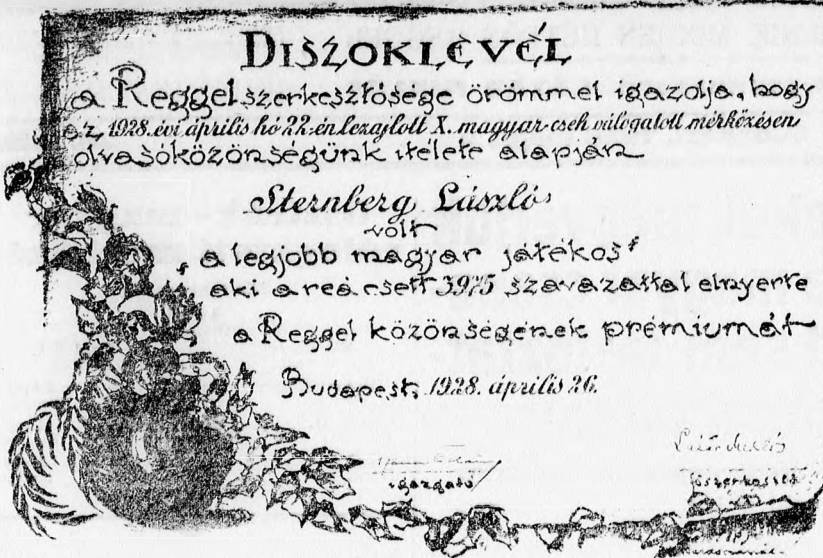 DISZOKLEVÉL
a Reggel szerkesztősége örömmel igazolja, hogy
az, 1928. évi április hó 22-én lezajlott X. magyar-cseh válogatott mérkőzésen
olvasóközönségünk itélete alapján
Sternberg László
volt
a legjobb magyar játékos
aki a reáesett 3975 szavazattal elnyerte
a Reggel közönségének prémiumát
Budapest, 1928. április 26.
igazgató
főszerkesztő